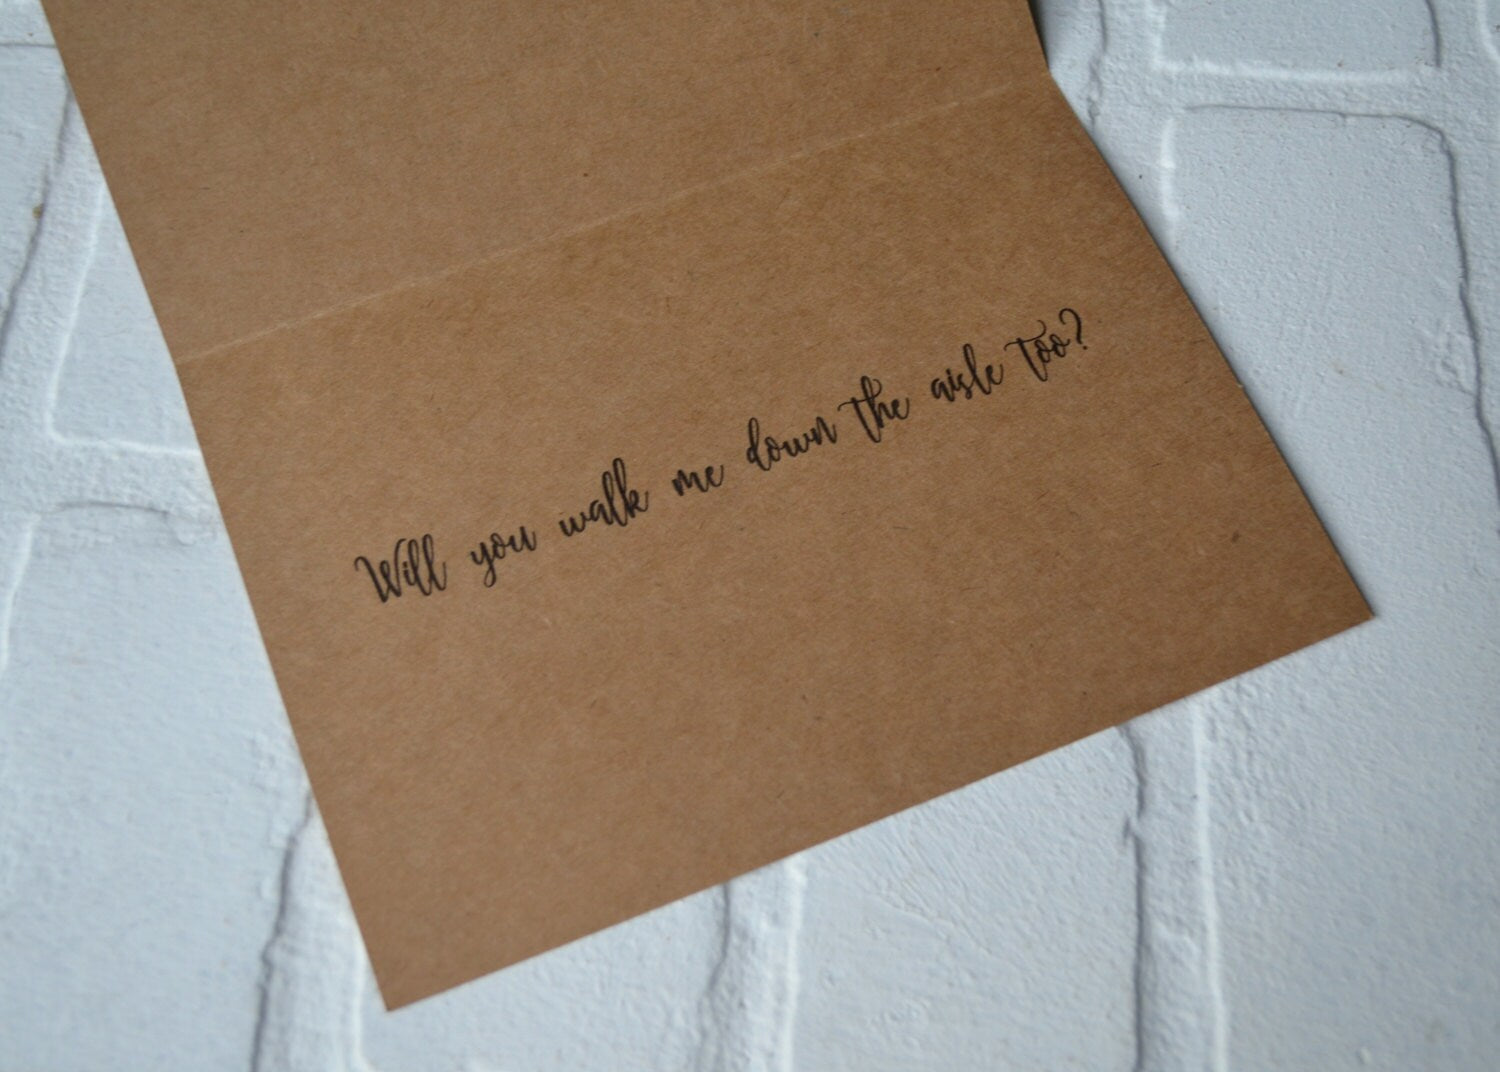 Will you walk me down the aisle too?